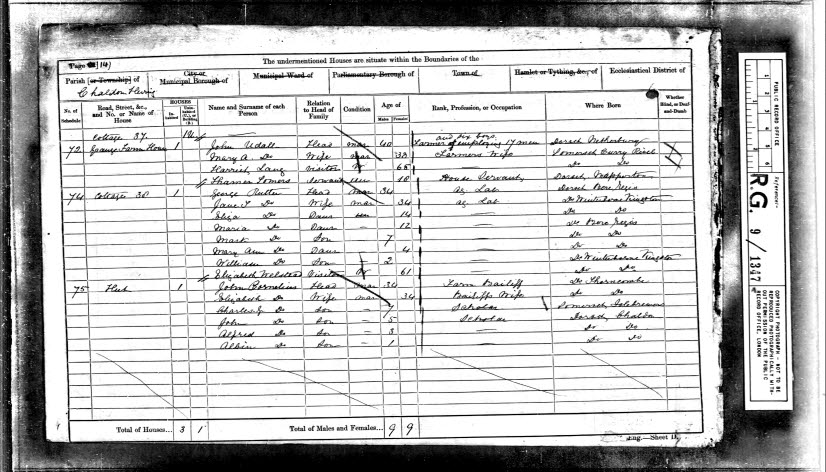 Page 14)
The undermentioned Houses are situate within the Boundaries of the
Parish [or Township] of
City or Municipal Borough of
Municipal Ward of
Parliamentary Borough of
Town of
Hamlet or Tything, &c., of
Ecclesiastical District of
Chaldon Herring
No. of Schedule
Road, Street, &c., and No. or Name of House
HOUSES
Inhabited
Uninhabited (U.), or Building (B.)
Name and Surname of each Person
Relation to Head of Family
Condition
Age of
Males
Females
Rank, Profession, or Occupation
Where Born
Whether Blind, or Deaf-and-Dumb
Cottage 37. 1U
and six boys
72 Grange Farm House 1 John Udall Head Mar 40 Farmer employing 17 men Dorset Netherbury
Mary A Do Wife Mar 38 Farmers Wife Somerset Curry
Harriet Lang Visitor W 68 Do Do
Somers Servant Un 18 House Servant Dorset Mapperton
74 Cottage 38 1 George Rutter Head Mar 34 Ag. Lab Dorset Bere Regis
Jane Do Wife Mar 34 Ag. Lab Do Winterborne Kingston
Eliza Do Daur Un 14 Do Do
Maria Do Daur — 12 Do Bere Regis
Mark Do Son 7 Do Do
Mary Ann Do Daur 4 Do Do
William Do Son — 2 Do Winterborne Kingston
Elizabeth Welstead Visitor W 61 Do Do
75 1 John Cornelius Head Mar 34 Farm Bailiff Do Thorncombe
Elizabeth Do Wife Mar 34 Bailiffs Wife Do Do
Charles Do Son — 7 Scholar Somerset
John Do Son — 5 Scholar Dorset Chaldon
Alfred Do Son — 3 Do Do
Albin Do Son — 1 Do Do
Total of Houses... 3 1
Total of Males and Females... 9 9
Eng.—Sheet D.
PUBLIC RECORD OFFICE
Reference:-
R.G. 9/1347
COPYRIGHT PHOTOGRAPH - NOT TO BE REPRODUCED PHOTOGRAPHICALLY WITHOUT PERMISSION OF THE PUBLIC RECORD OFFICE, LONDON